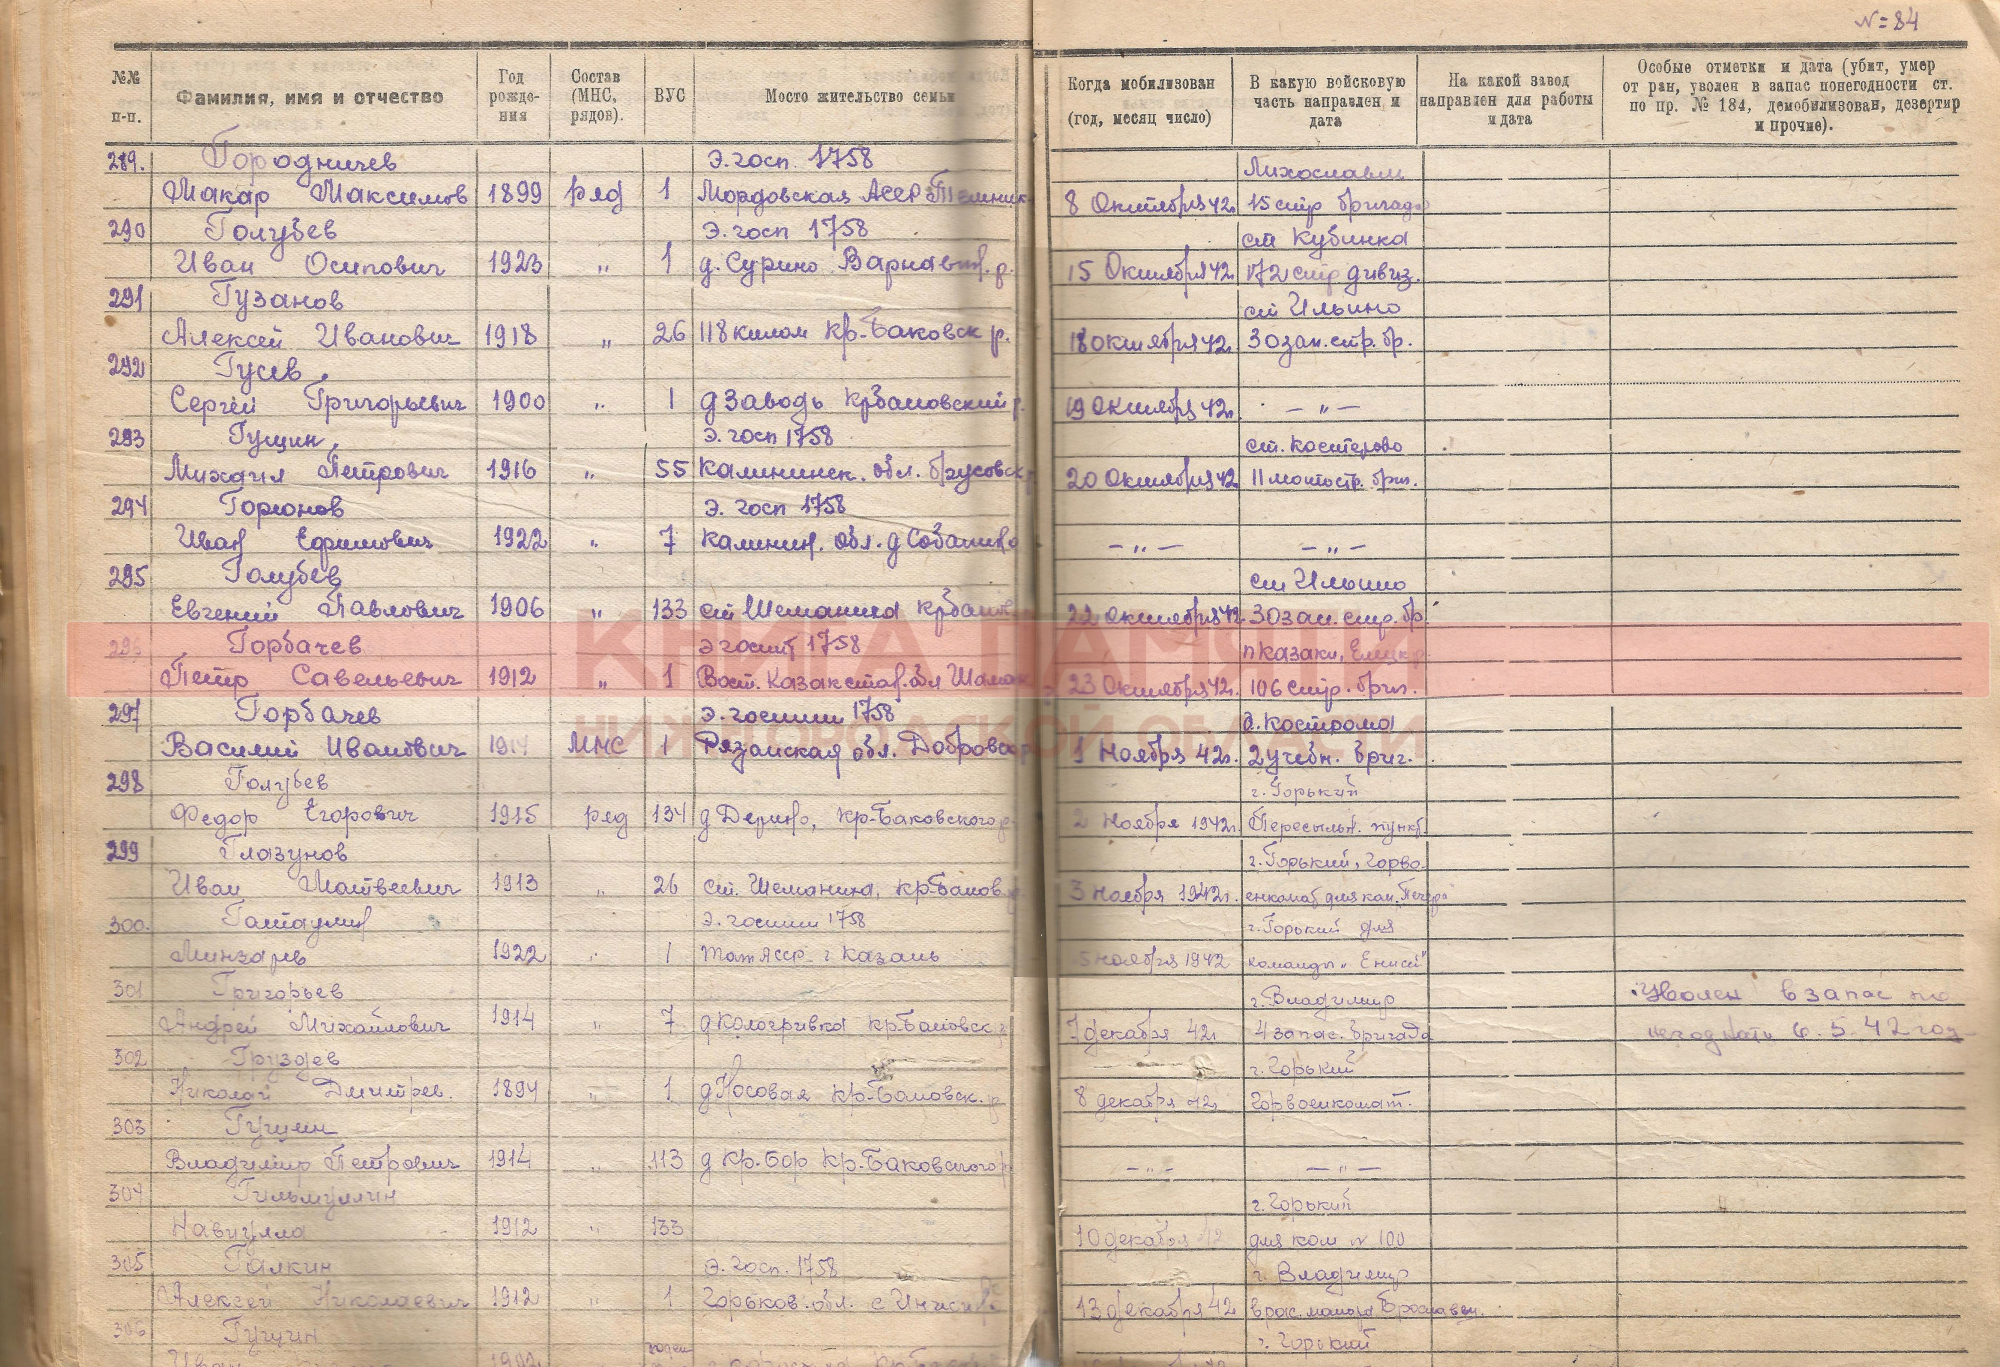 №=84
№№ п-п.
Фамилия, имя и отчество
Год рождения
Состав (МНС, рядов).
ВУС
Место жительство семьи
Когда мобилизован (год, месяц число)
В какую войсковую часть направлен и дата
На какой завод направлен для работы и дата
Особые отметки и дата (убит, умер от ран, уволен в запас понегодности ст. по пр. № 184, демобилизован, дезертир и прочие).
289. Городничев Э. госп. 1758 Лихославль
Макар Максимов 1899 ряд 1 Мордовская АССР 8 Октября 42г. 15 стр бригада
290 Голубев Э. госп 1758 ст Кубинка
Иван Осипович 1923 „ 1 д. Сурино Варнавин. р. 15 Октября 42г. 172 стр дивиз.
291 Гузанов ст Ильино
Алексей Иванович 1918 „ 26 118 килом Кр-Баковск р. 18 октября 42г. 30 зап. стр. бр.
292 Гусев
Сергей Григорьевич 1900 „ 1 д Заводь Крбаковский р. 19 Октября 42г. — „ —
293 Гущин Э. госп 1758 ст. Костерово
Михаил Петрович 1916 „ 55 Калининск. обл. 20 Октября 42 11 мотостр. бриг.
294 Горюнов Э. госп 1758
Иван Ефимович 1922 „ 7 Калинин. обл. д — „ — — „ —
295 Голубев ст Ильино
Евгений Павлович 1906 „ 133 ст Шеманиха Крбаков 22 октября 42 30 зап. стр. бр.
296 Горбачев Э госпит 1758 п Казаки, Елецк р.
Петр Савельевич 1912 „ 1 Вост. Казакстан. обл 23 Октября 42г. 106 стр. бриг.
КНИГА ПАМЯТИ
НИЖЕГОРОДСКОЙ ОБЛАСТИ
297 Горбачев Э. госпит 1758 г. Кострома
Василий Иванович МНС 1 Рязанская обл. 1 Ноября 42г. 2 учебн. бриг.
298 Голубев г. Горький
Федор Егорович 1915 ряд 134 д Дерино, Кр-Баковского р. 2 Ноября 1942г. Пересыльн. пункт
299 Глазунов г. Горький, Горво-
Иван Матвеевич 1913 „ 26 ст. Шеманиха, Кр-Баков. р. 3 Ноября 1942г. енкомат для ком.
300. Э. госпит 1758 г. Горький для
1922 „ 1 Тат АССР г Казань 5 ноября 1942 команды „Енисей"
301 Григорьев г. Владимир Уволен в запас по
Андрей Михайлович 1914 „ 7 д Кологривка Кр-Баковск. р 7 декабря 42г 4 запас. бригада 6. 5. 42 год
302 Груздев г. Горький
Николай Дмитрев. 1894 „ 1 д Носовая Кр-Баковск. р 8 декабря 42г Горвоенкомат.
303 Гущин
Владимир Петрович 1914 „ 113 д Кр. Бор Кр-Баковского р — „ — — „ —
304 Гильмуллин г. Горький
1912 „ 133 10 декабря 42 для ком № 100
305 Галкин Э. госп. 1758 г. Владимир
Алексей Николаевич 1912 „ 1 Горьков. обл. с 13 декабря 42
306 Гущин г. Горький
Иван